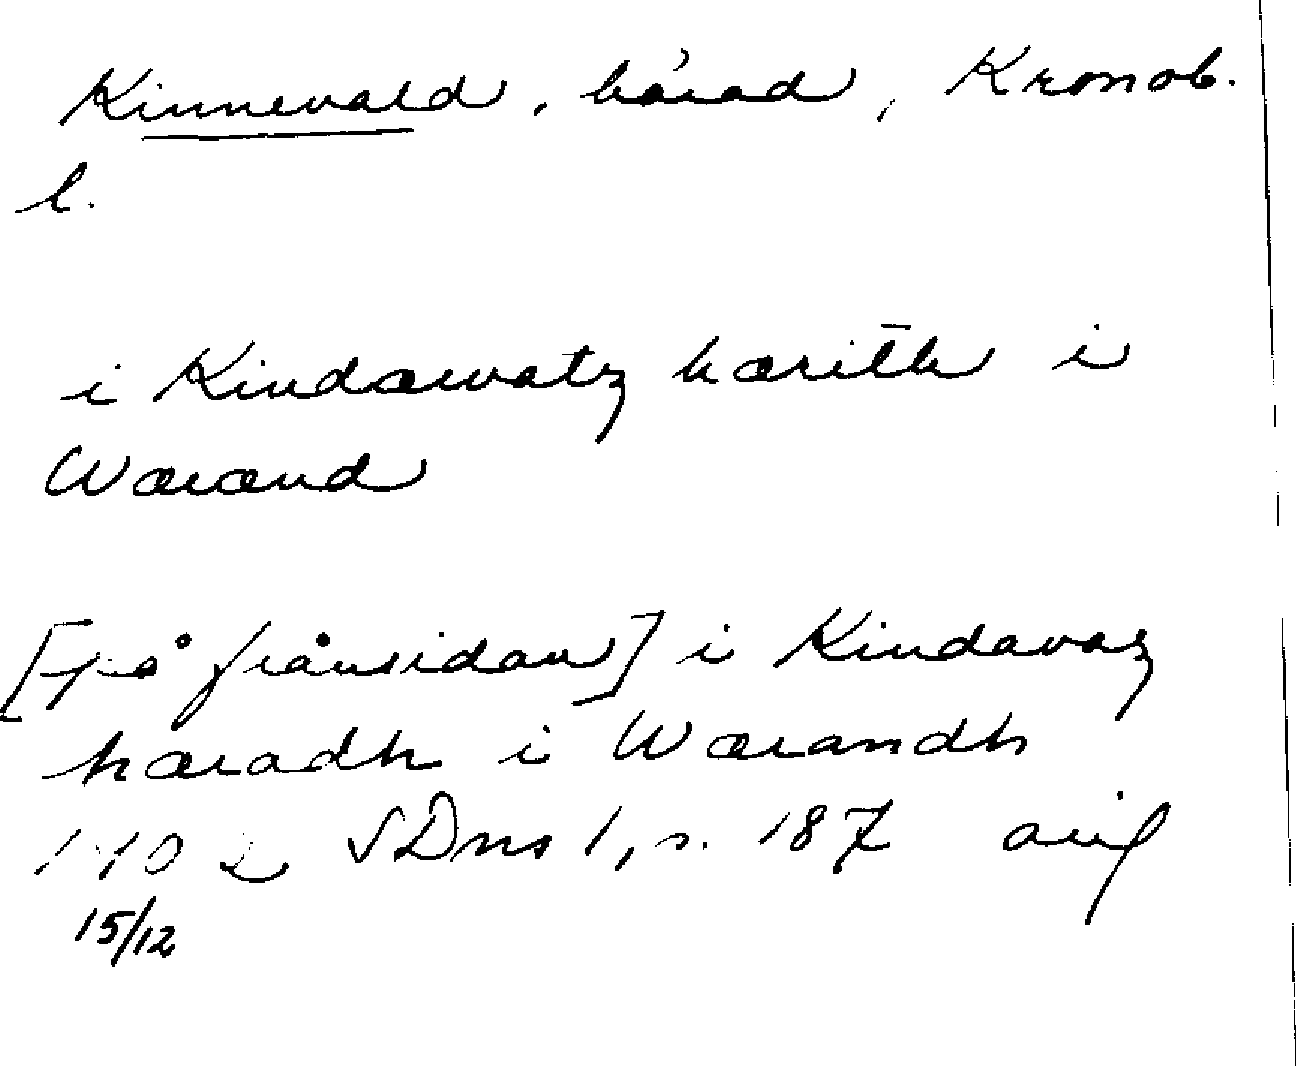 Kinnevald, härad, Kronob.
l.
i Kindæwatz hærith i
Wærænd
[på frånsidan] i Kindavaz
hæradh i Wærandh
1402 SDns 1, s. 187 avif
15/12